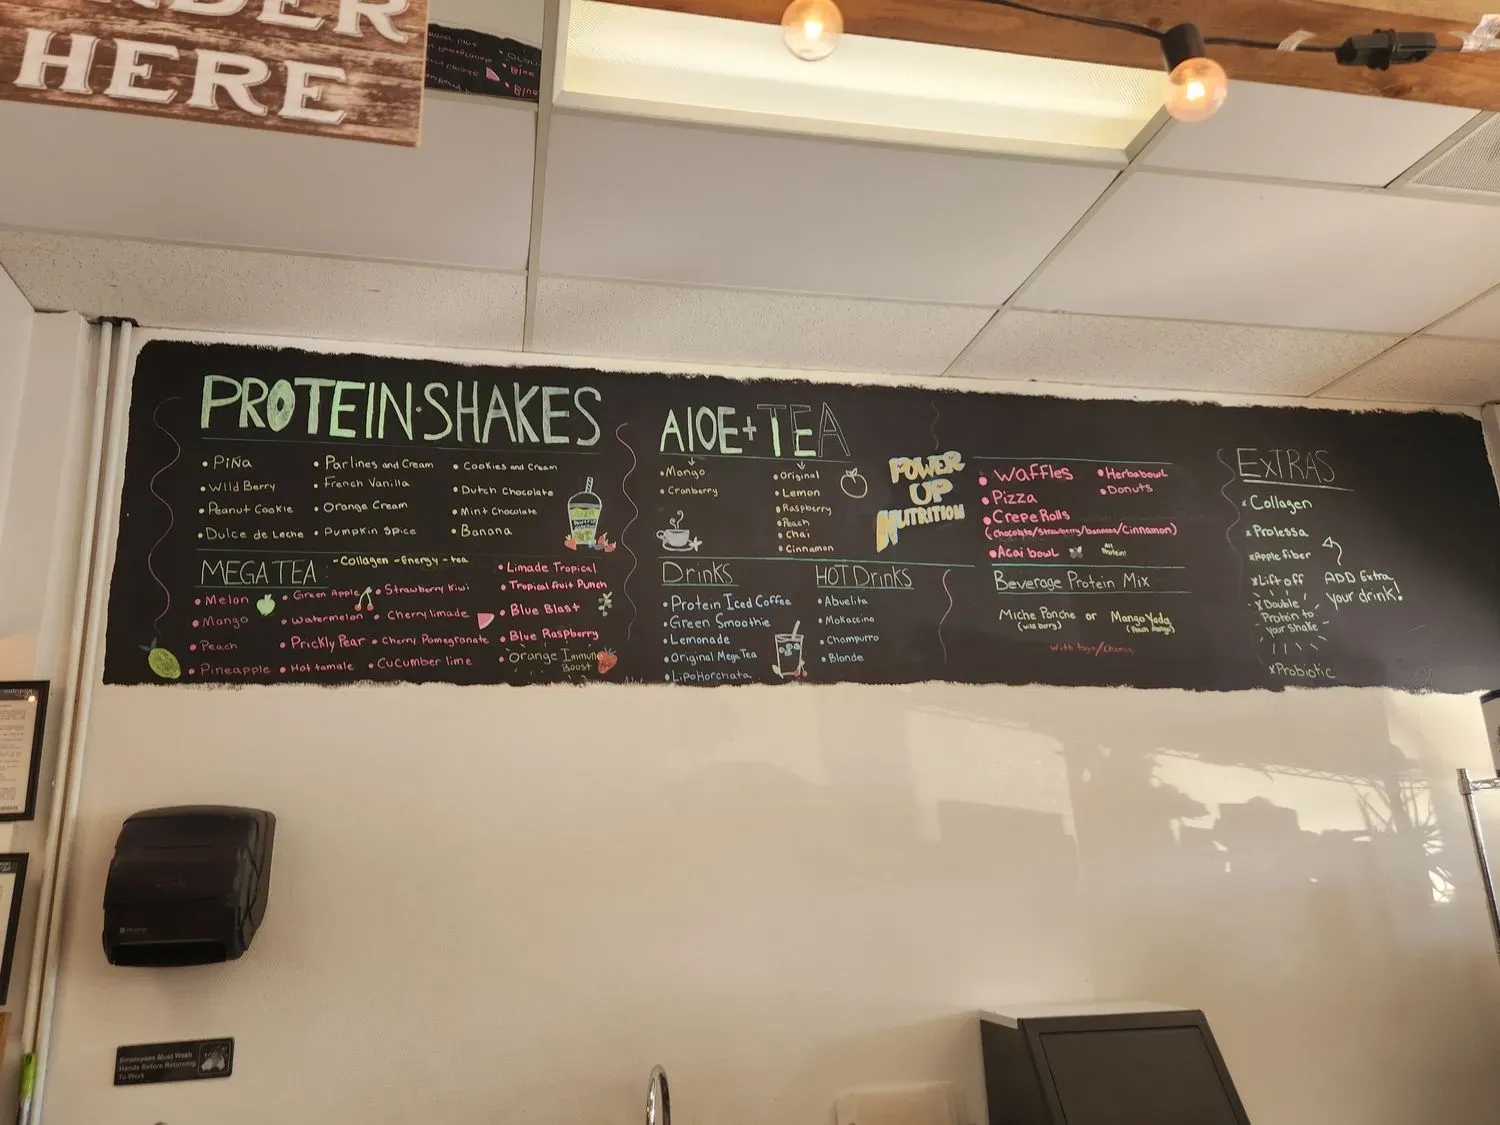 RDER
HERE
PROTEIN·SHAKES
• Piña
• Wild Berry
• Peanut Cookie
• Dulce de Leche
• Parlines and Cream
• French Vanilla
• Orange Cream
• Pumpkin Spice
• Cookies and Cream
• Dutch Chocolate
• Mint Chocolate
• Banana
MEGA TEA
-Collagen -Energy -tea
• Melon
• Mango
• Peach
• Pineapple
• Green Apple
• Watermelon
• Prickly Pear
• Hot tamale
• Strawberry Kiwi
• Cherry limade
• Cherry Pomegranate
• Cucumber lime
• Limade Tropical
• Tropical fruit Punch
• Blue Blast
• Blue Raspberry
• Orange Immune
Boost
AlOE+TEA
• Mango
• Cranberry
• Original
• Lemon
• Raspberry
• Peach
• Chai
• Cinnamon
POWER
UP
NUTRITION
Drinks
• Protein Iced Coffee
• Green Smoothie
• Lemonade
• Original Mega Tea
• LipoHorchata
HOT Drinks
• Abuelita
• Mokaccino
• Champurro
• Blonde
• Waffles
• Pizza
• Crepe Rolls
(chocolate/strawberry/banana/Cinnamon)
• Acai bowl
• Herbabowl
• Donuts
All
Protein!
Beverage Protein Mix
Miche Ponche or Mango Yada
(wild berry)
(Peach Mango)
EXTRAS
x Collagen
x Prolessa
x Apple fiber
x Lift off
x Double
Protein to
your shake
x Probiotic
ADD Extra
your drink!
Employees Must Wash
Hands Before Returning
To Work